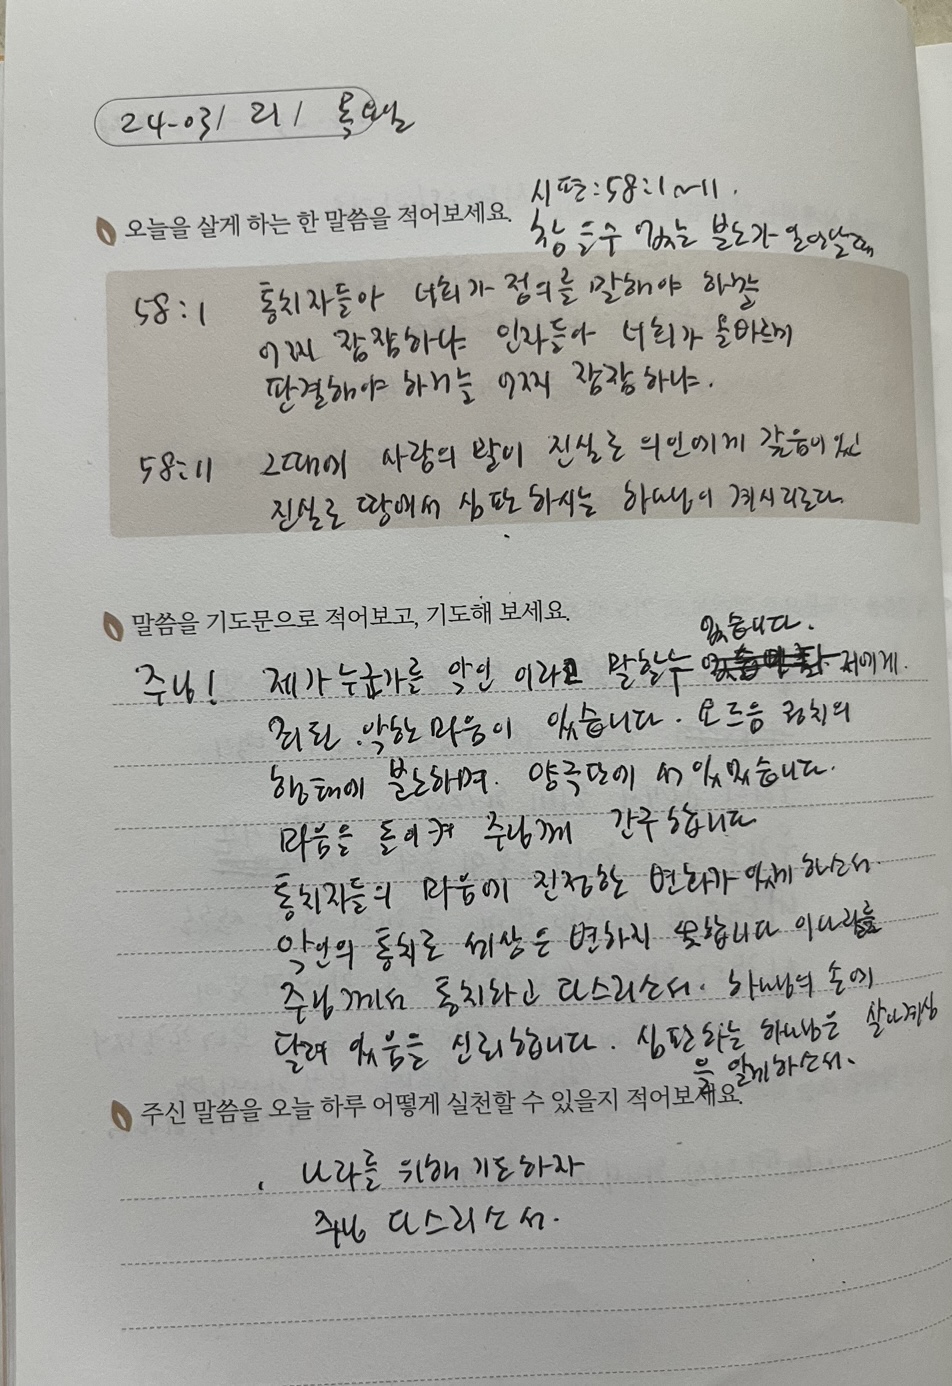 24-03/ 21/ 목요일
시편:58:1~11.
오늘을 살게 하는 한 말씀을 적어보세요.
참을수 없는 분노가 일어날때
58:1 통치자들아 너희가 정의를 말해야 하거늘
어찌 잠잠하냐 인자들아 너희가 올바르게
판결해야 하거늘 어찌 잠잠하냐.
58:11 그때에 사람의 말이 진실로 의인에게 갚음이 있고
진실로 땅에서 심판하시는 하나님이 계시리로다
말씀을 기도문으로 적어보고, 기도해 보세요.
없습니다.
주님! 제가 누군가를 악인 이라고 말할수 저에게.
죄된 악한 마음이 있습니다. 요즈음 정치의
행태에 분노하며. 양극단에 서 있었습니다.
마음을 돌이켜 주님께 간구합니다
통치자들의 마음에 진정한 변화가 있게 하소서.
악인의 통치로 세상은 변하지 못합니다 이나라를
주님께서 통치하고 다스리소서. 하나님의 손에
달려 있음을 신뢰합니다. 심판하는 하나님은 살아계심
을 알게하소서.
주신 말씀을 오늘 하루 어떻게 실천할 수 있을지 적어보세요.
나라를 위해 기도하자
주님 다스리소서.